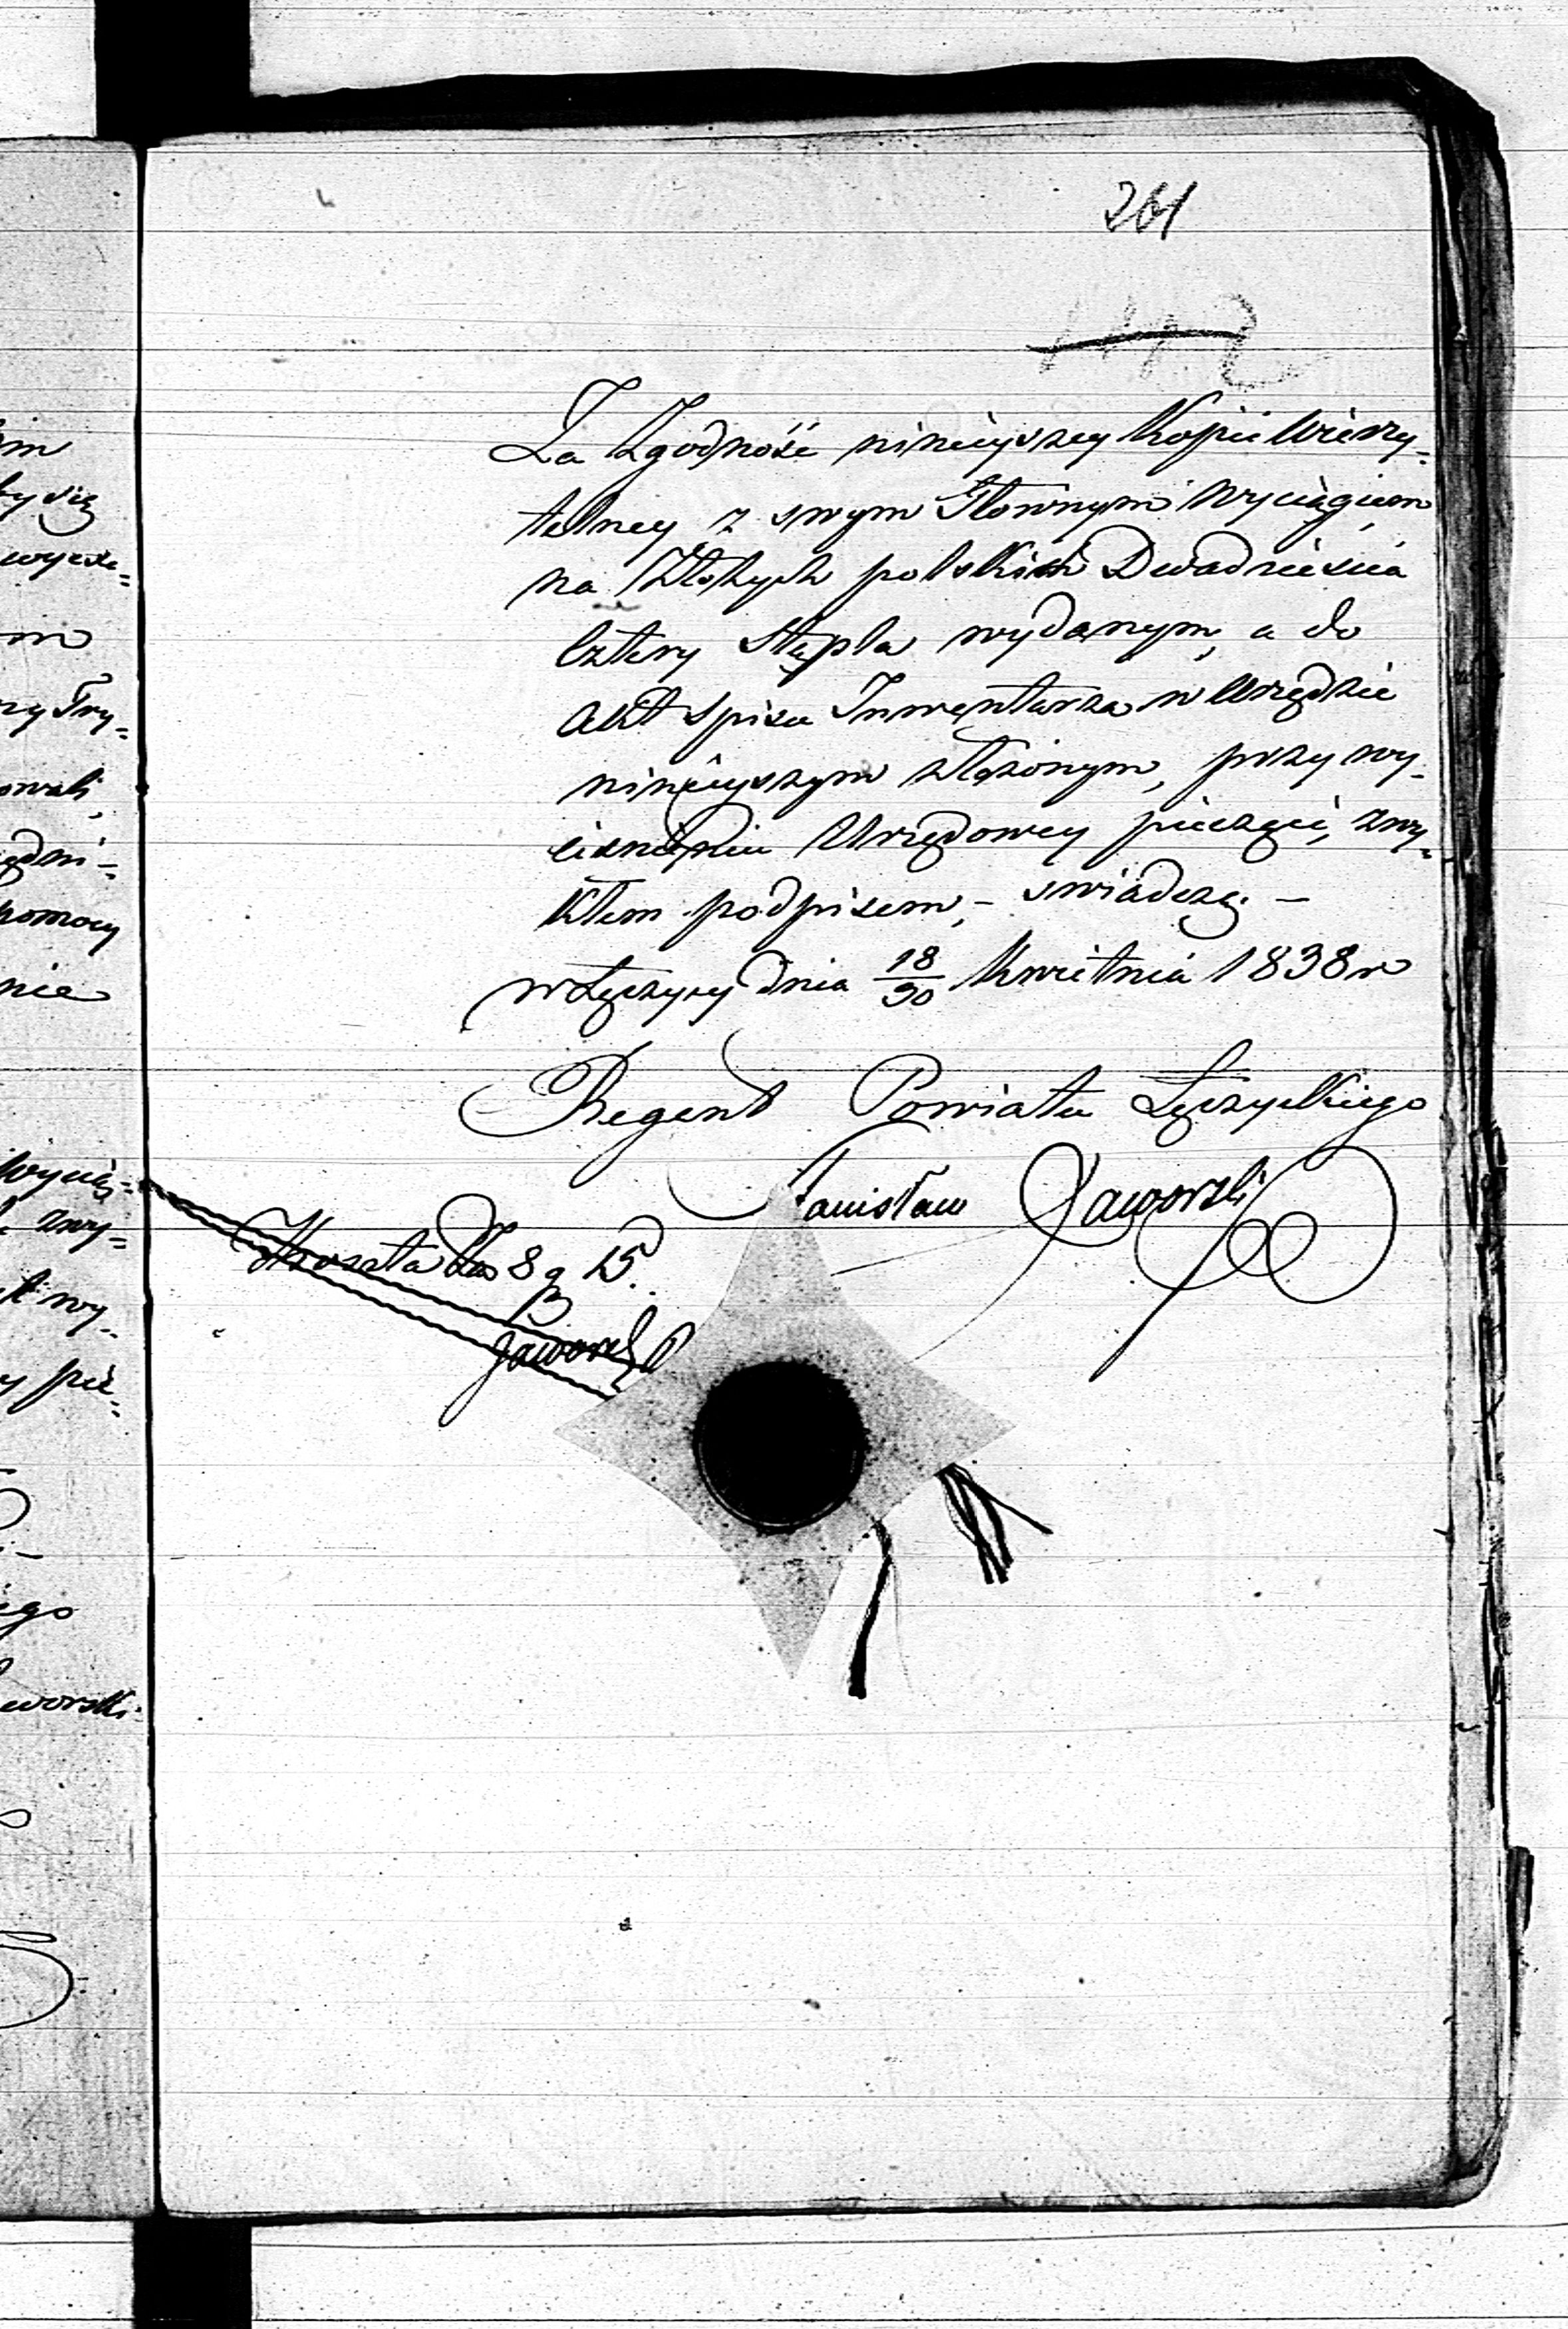 261
Za Zgodność ninieyszey Kopii Wierzy-
telney z swym Głownym Wyciągiem
na Złotych polskich Dwadzieścia
Cztery Stępla wydanym, a do
akt Spisu Inwentarza w Urzędzie
ninieyszym złożonym, przy wy-
ciśnieniu Urzędowey pieczęci, zwy-
kłem podpisem, - swiadczę. -
w Łęczycy dnia 18/30 Kwietnia 1838 r
Regent Powiatu Łęczyckiego
Stanisław Jaworski
Koszta Złp 8 g 15.
Jaworski
im
by się
wyście=
m
zy Try=
owali,
ędni-
pomocy
nie
Wycią=
zwy=
wy-
y pie=
iego
aworski